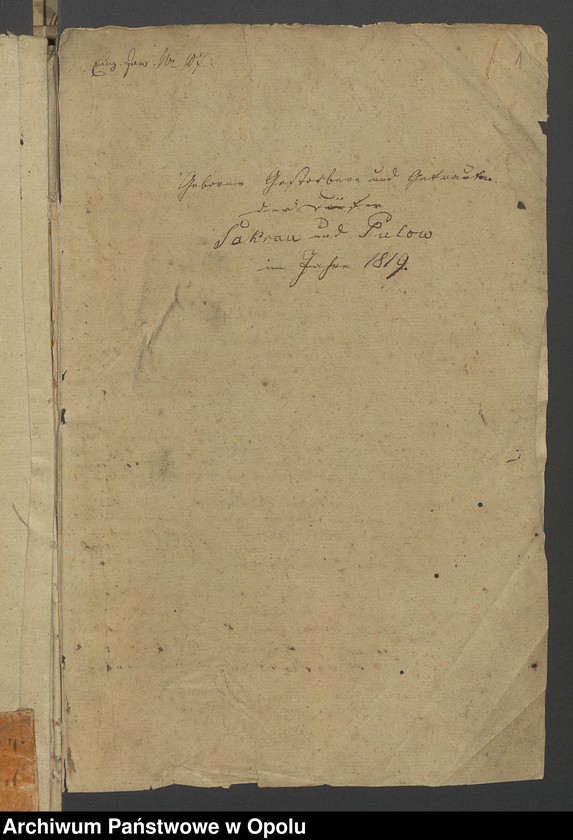 1
Geborne Gestorbene und Getraute
der Dörfer
Sakrau und Pulow
im Jahre 1819.
Archiwum Państwowe w Opolu